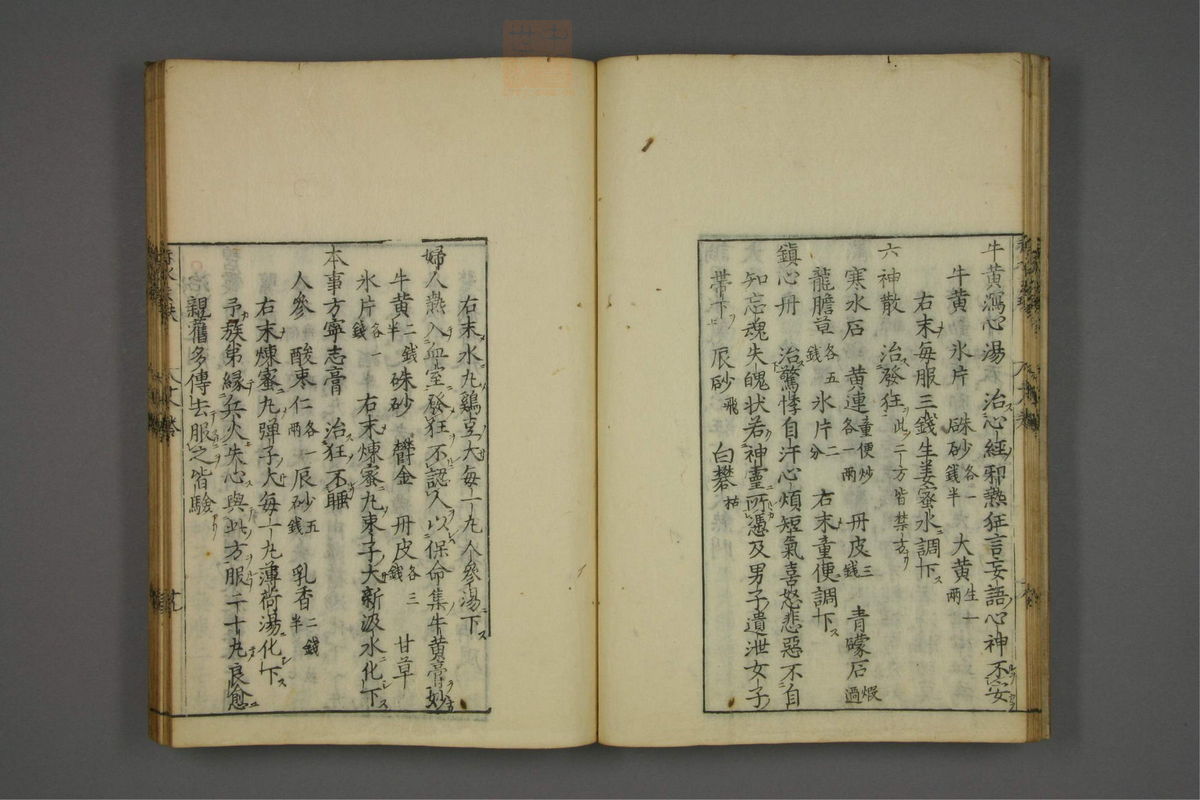 牛黄瀉心湯 治心經邪熱狂言妄語心神不安
牛黄 氷片 硃砂各一錢半 大黄生一兩
右末毎服三錢生姜蜜水調下
六神散 治發狂此二方皆禁方
寒水石 黄連童便炒各一兩 丹皮三錢 青礞石煅過
龍膽草各五錢 氷片二分 右末童便調下
鎮心丹 治驚悸自汗心煩短氣喜怒悲惡不自
知忘魂失魄状若神靈所憑及男子遺泄女子
帯下 辰砂飛 白礬枯
右末水丸鷄豆大毎一丸人參湯下
婦人熱入血室發狂不認人以保命集牛黄膏妙
牛黄二錢半 硃砂 鬱金 丹皮各三錢 甘草
氷片各一錢 右末煉蜜丸枣子大新汲水化下
本事方寧志膏 治狂不睡
人參 酸枣仁各一兩 辰砂五錢 乳香二錢半
右末煉蜜丸彈子大毎一丸薄荷湯化下
予族弟縁兵火失心與此方服二十丸良愈
親舊多傳去服之皆驗